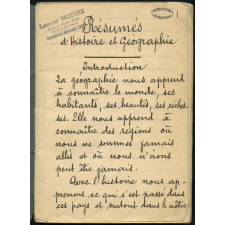 Résumés
d'Histoire et Géographie
Introduction
La géographie nous apprend
à connaître le monde, ses
habitants, ses beautés, ses riches-
ses. Elle nous apprend à
connaître des régions où
nous ne sommes jamais
allés et où nous n'irons
peut être jamais.
Avec l'histoire nous ap-
prenons ce qui s'est passé dans
ces pays et surtout dans le nôtre